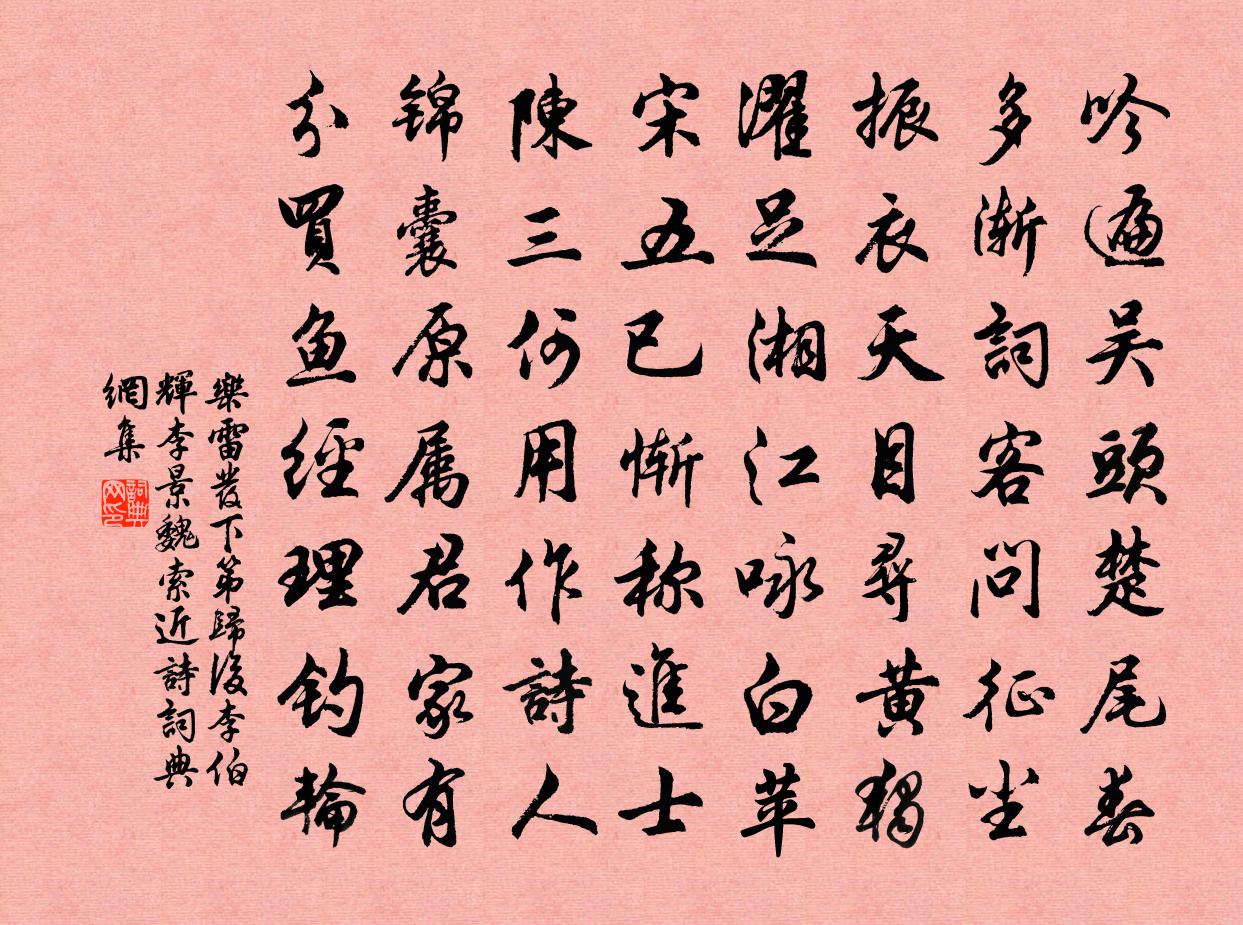 吟遍吴頭楚尾春
多慚詞客問征尘
振衣天目尋黄獨
濯足湘江咏白苹
宋五已慚称進士
陳三何用作詩人
锦囊原属君家有
分買鱼經理钓輪
樂雷發下第歸後李伯
輝李景魏索近詩詞典
網集
詞典
网印